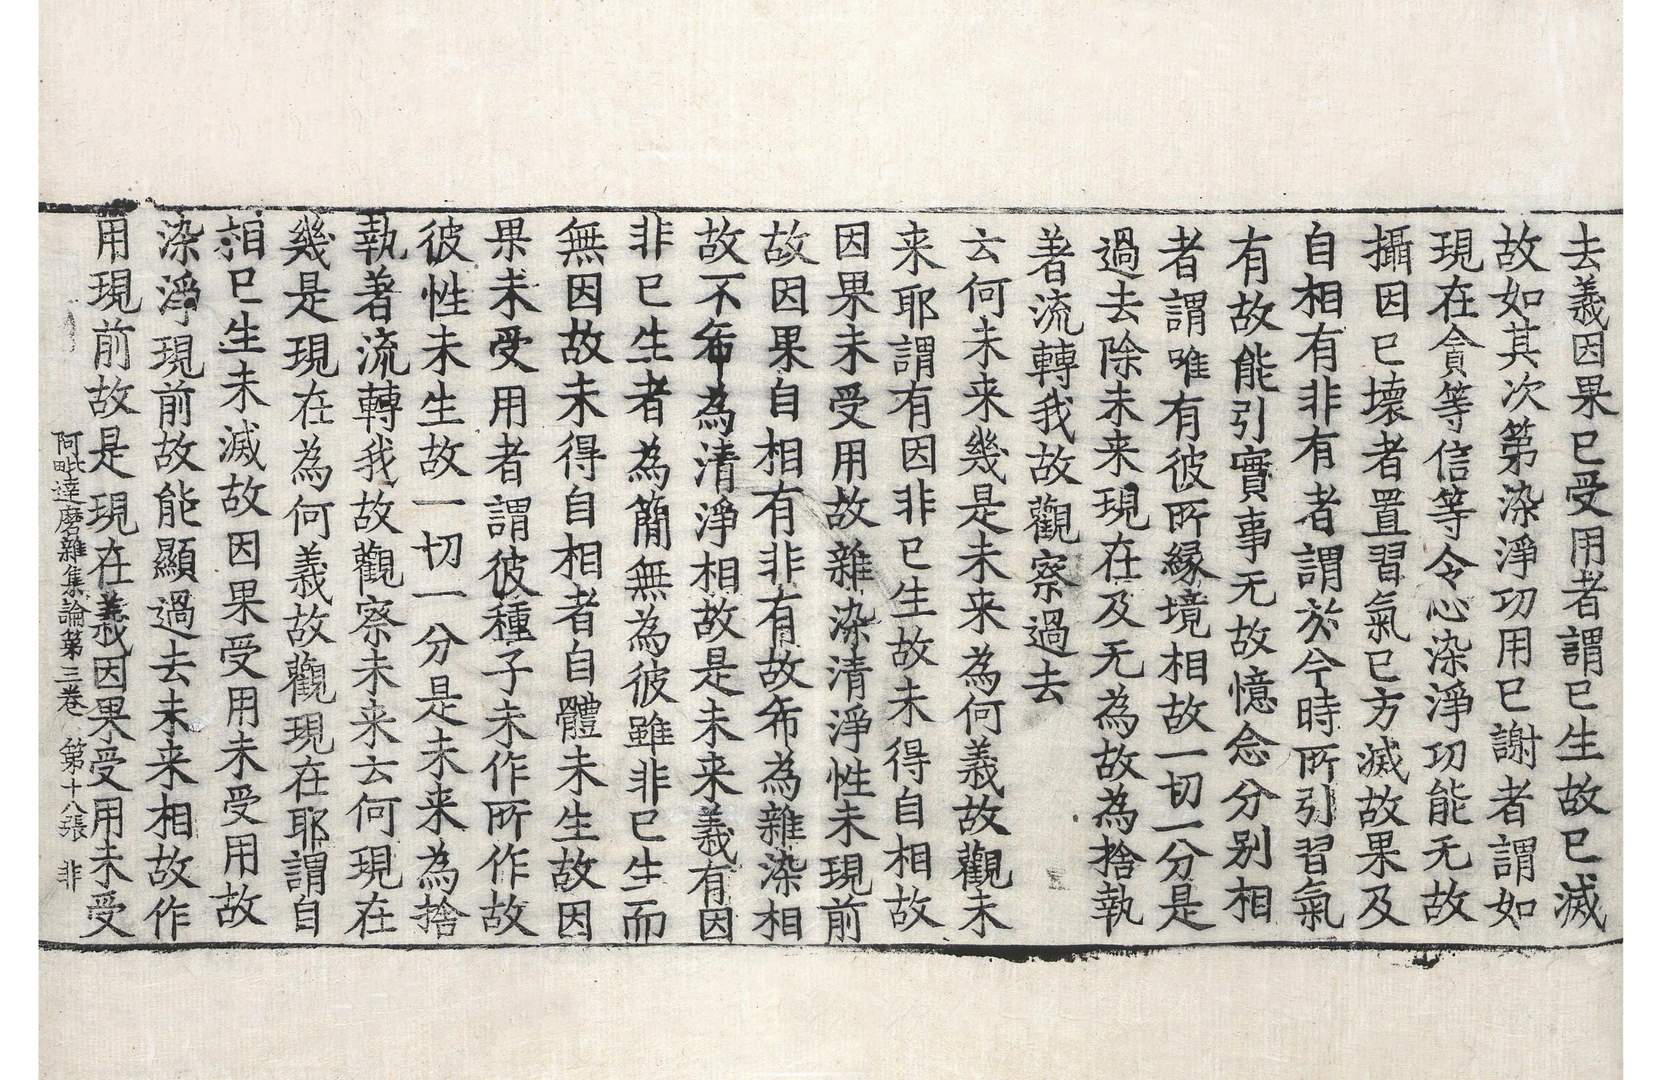 去義因果已受用者謂已生故已滅
故如其次第染淨功用已謝者謂如
現在貪等信等令心染淨功能无故
攝因已壞者置習氣已方滅故果及
自相有非有者謂於今時所引習氣
有故能引實事无故憶念分别相
者謂唯有彼所緣境相故一切一分是
過去除未来現在及无為故為捨執
著流轉我故觀察過去
云何未来幾是未来為何義故觀未
来耶謂有因非已生故未得自相故
因果未受用故雜染清淨性未現前
故因果自相有非有故希為雜染相
故不希為清淨相故是未来義有因
非已生者為簡無為彼雖非已生而
無因故未得自相者自體未生故因
果未受用者謂彼種子未作所作故
彼性未生故一切一分是未来為捨
執著流轉我故觀察未来云何現在
幾是現在為何義故觀現在耶謂自
相已生未滅故因果受用未受用故
染淨現前故能顯過去未来相故作
用現前故是現在義因果受用未受
阿毗達磨雜集論第三卷　第十八張　非